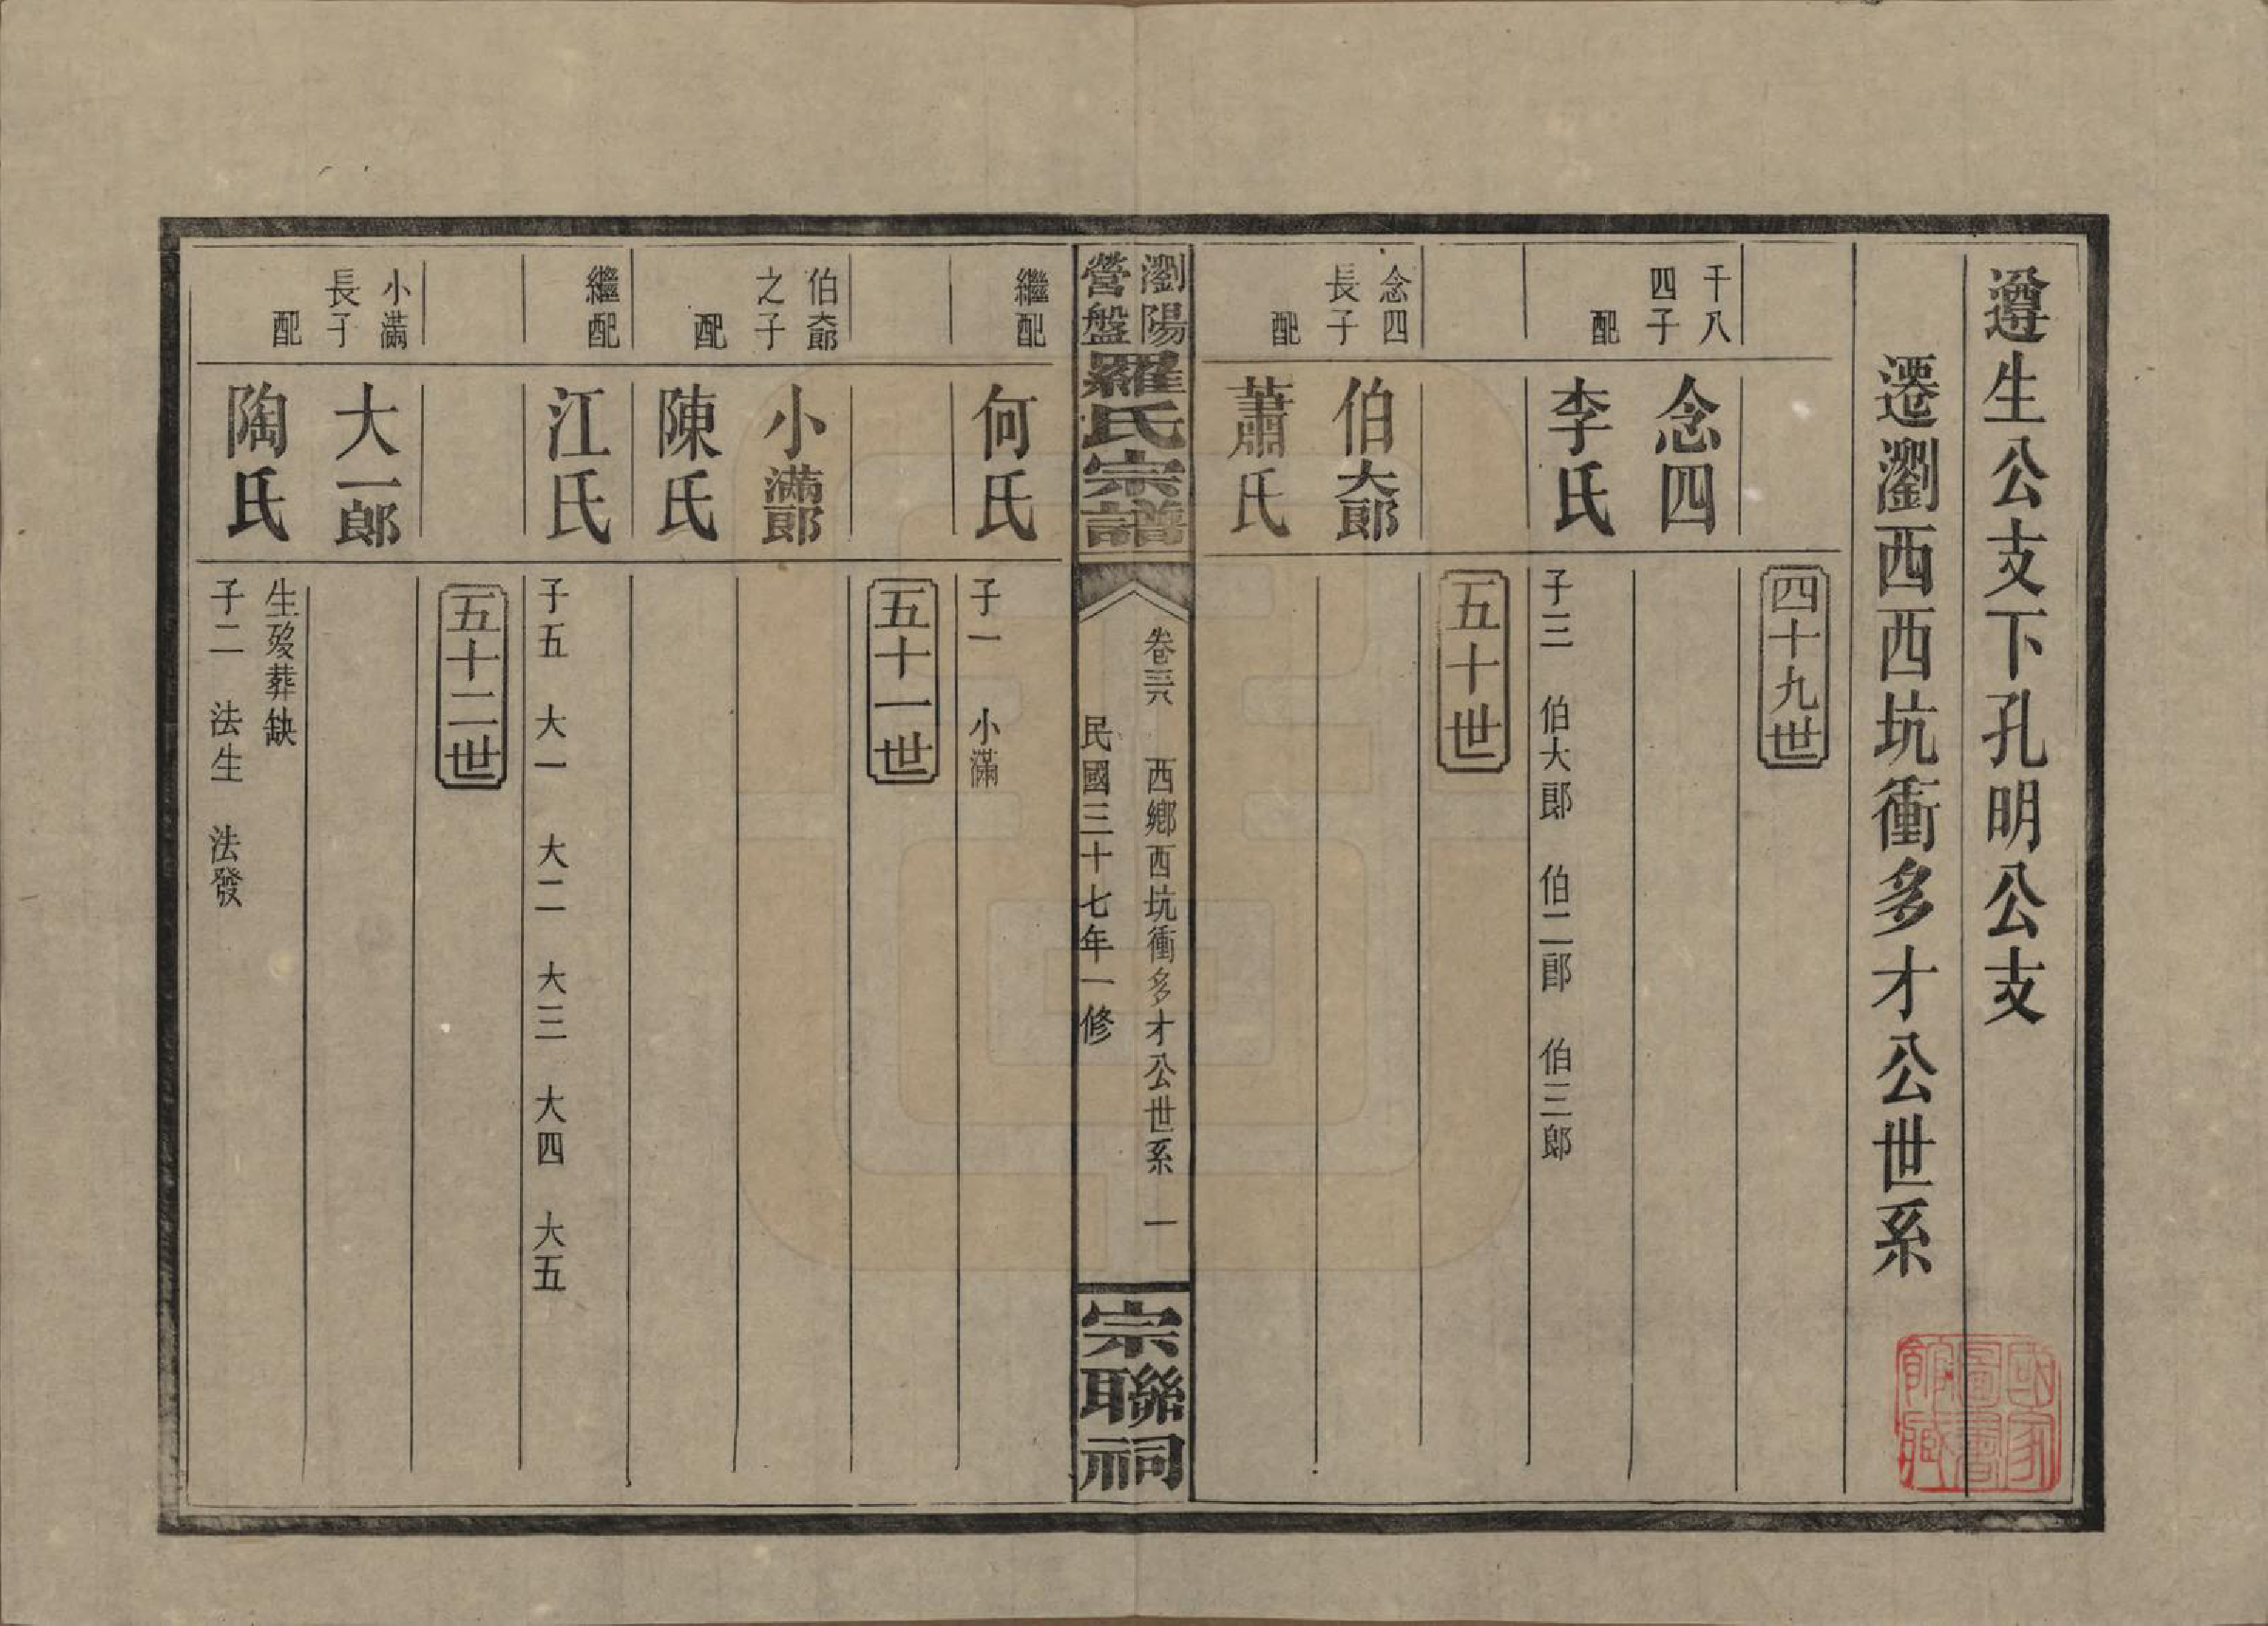 遵生公支下孔明公支
遷瀏西西坑衝多才公世系
四十九世
千八四子
念四
配
李氏
子三 伯大郎 伯二郎 伯三郎
五十世
念四長子
伯大郎
配
蕭氏
瀏陽營盤羅氏宗譜
卷三六 西鄉西坑衝多才公世系 一
民國三十七年一修
宗聯祠
繼配
何氏
子一 小滿
五十一世
伯大郎之子
小滿郎
配
陳氏
繼配
江氏
子五 大一 大二 大三 大四 大五
五十二世
小滿長子
大一郎
配
陶氏
生歿葬缺
子二 法生 法發
國家圖書館藏